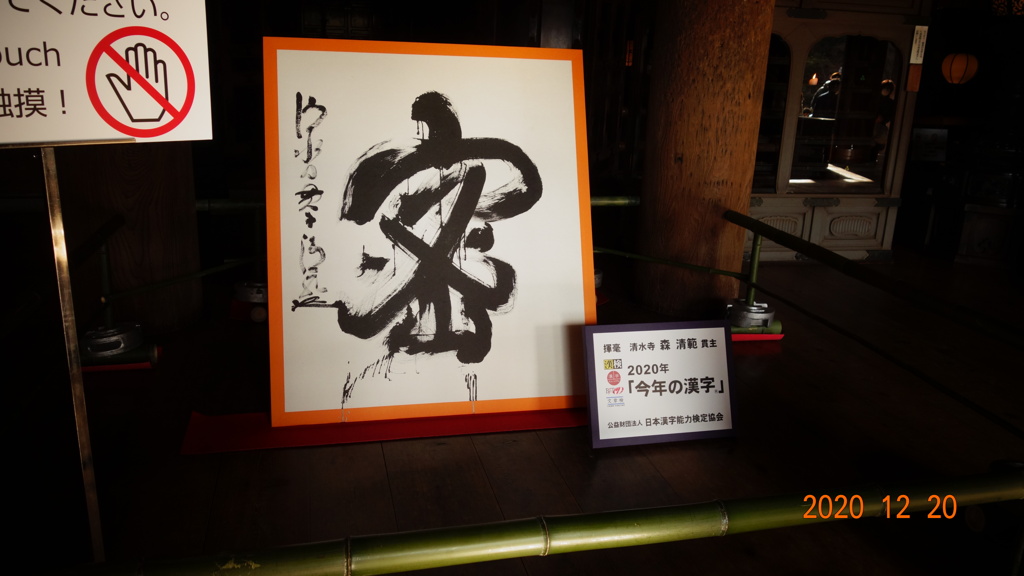 てください。
ouch
触摸！
密
揮毫 清水寺 森 清範 貫主
漢検
2020年
「今年の漢字」
公益財団法人 日本漢字能力検定協会
2020 12 20